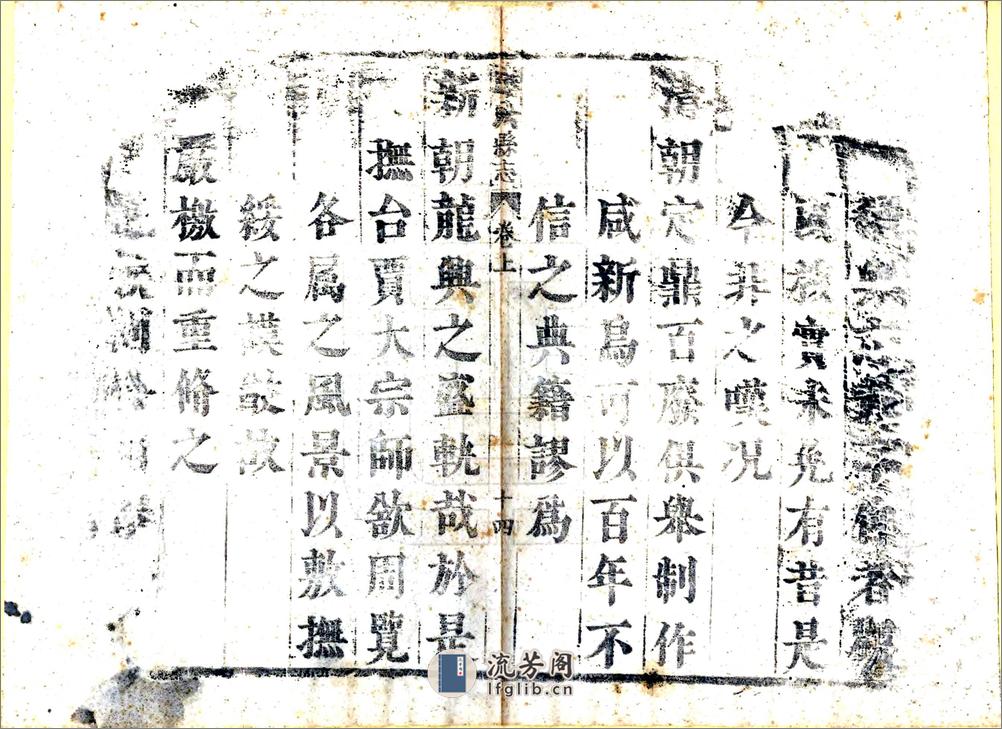 民教實未免有昔是
今非之嘆况
清朝定鼎百廢俱舉制作
咸新烏可以百年不
信之典籍謬爲
縣志
卷上
十四
新朝龍興之盛軌哉於是
撫台賈大宗師欲周覽
各属之風景以敷撫
綏之謨猷故
嚴檄而重修之
流芳阁
lfglib.cn